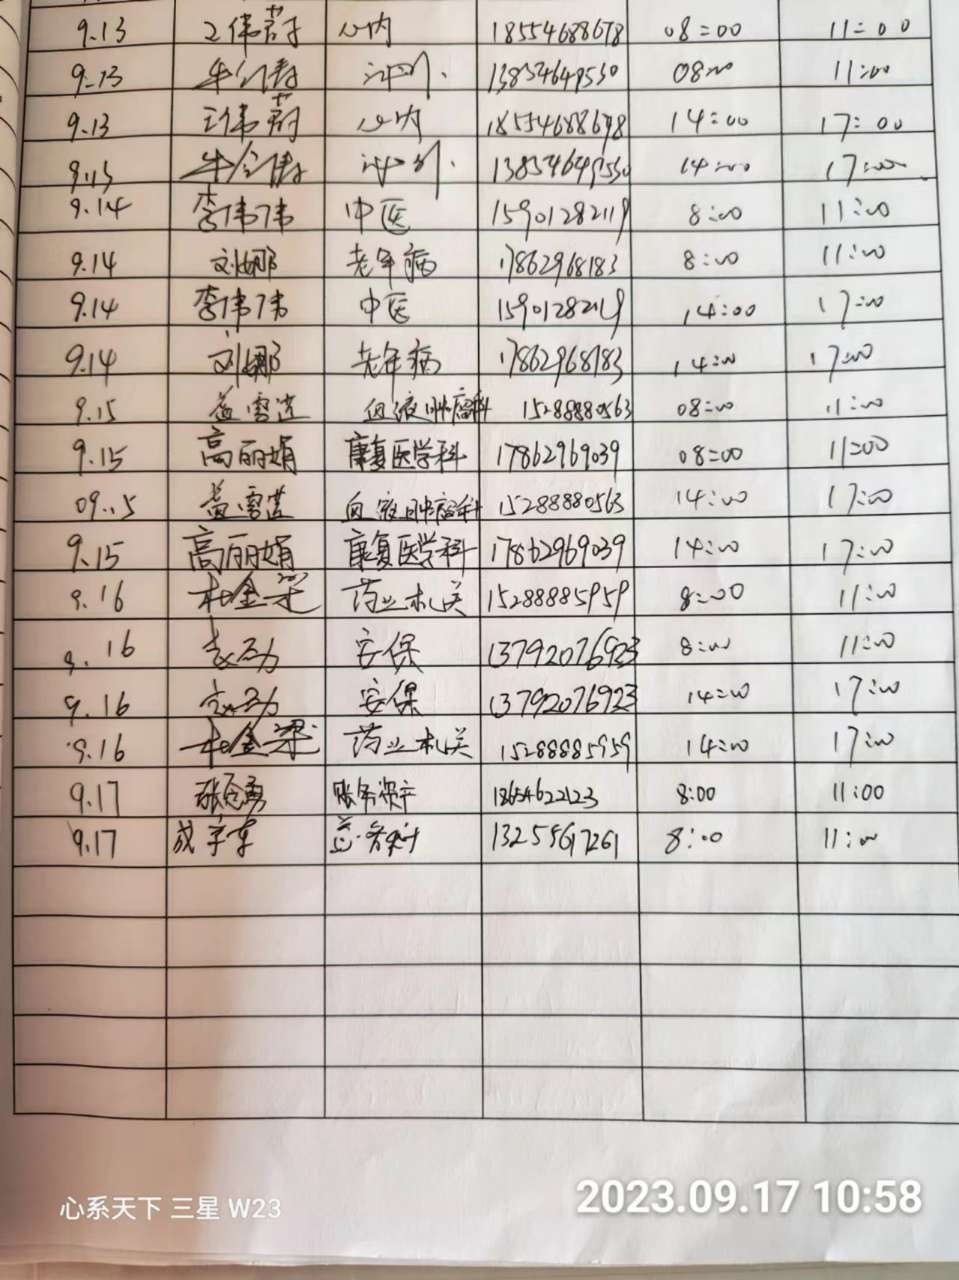 9.13 王伟莉 心内 18554688678 08:00 11:00
9.13 13854649530 08:00 11:00
9.13 王伟莉 心内 18554688698 14:00 17:00
9.13 13854649530 14:00 17:00
9.14 李伟伟 中医 15901282119 8:00 11:00
9.14 刘娜 老年病 17862968183 8:00 11:00
9.14 李伟伟 中医 15901282119 14:00 17:00
9.14 刘娜 老年病 17862968183 14:00 17:00
9.15 血液肿瘤科 15288880563 08:00 11:00
9.15 高丽娟 康复医学科 17862969039 08:00 11:00
09.15 血液肿瘤科 15288880563 14:00 17:00
9.15 高丽娟 康复医学科 17862969039 14:00 17:00
9.16 杜金梁 药业机关 15288885959 8:00 11:00
9.16 安保 13792076923 8:00 11:00
9.16 安保 13792076923 14:00 17:00
9.16 杜金梁 药业机关 15288885959 14:00 17:00
9.17 账务资产 18654622123 8:00 11:00
9.17 8:00 11:00
心系天下 三星 W23
2023.09.17 10:58